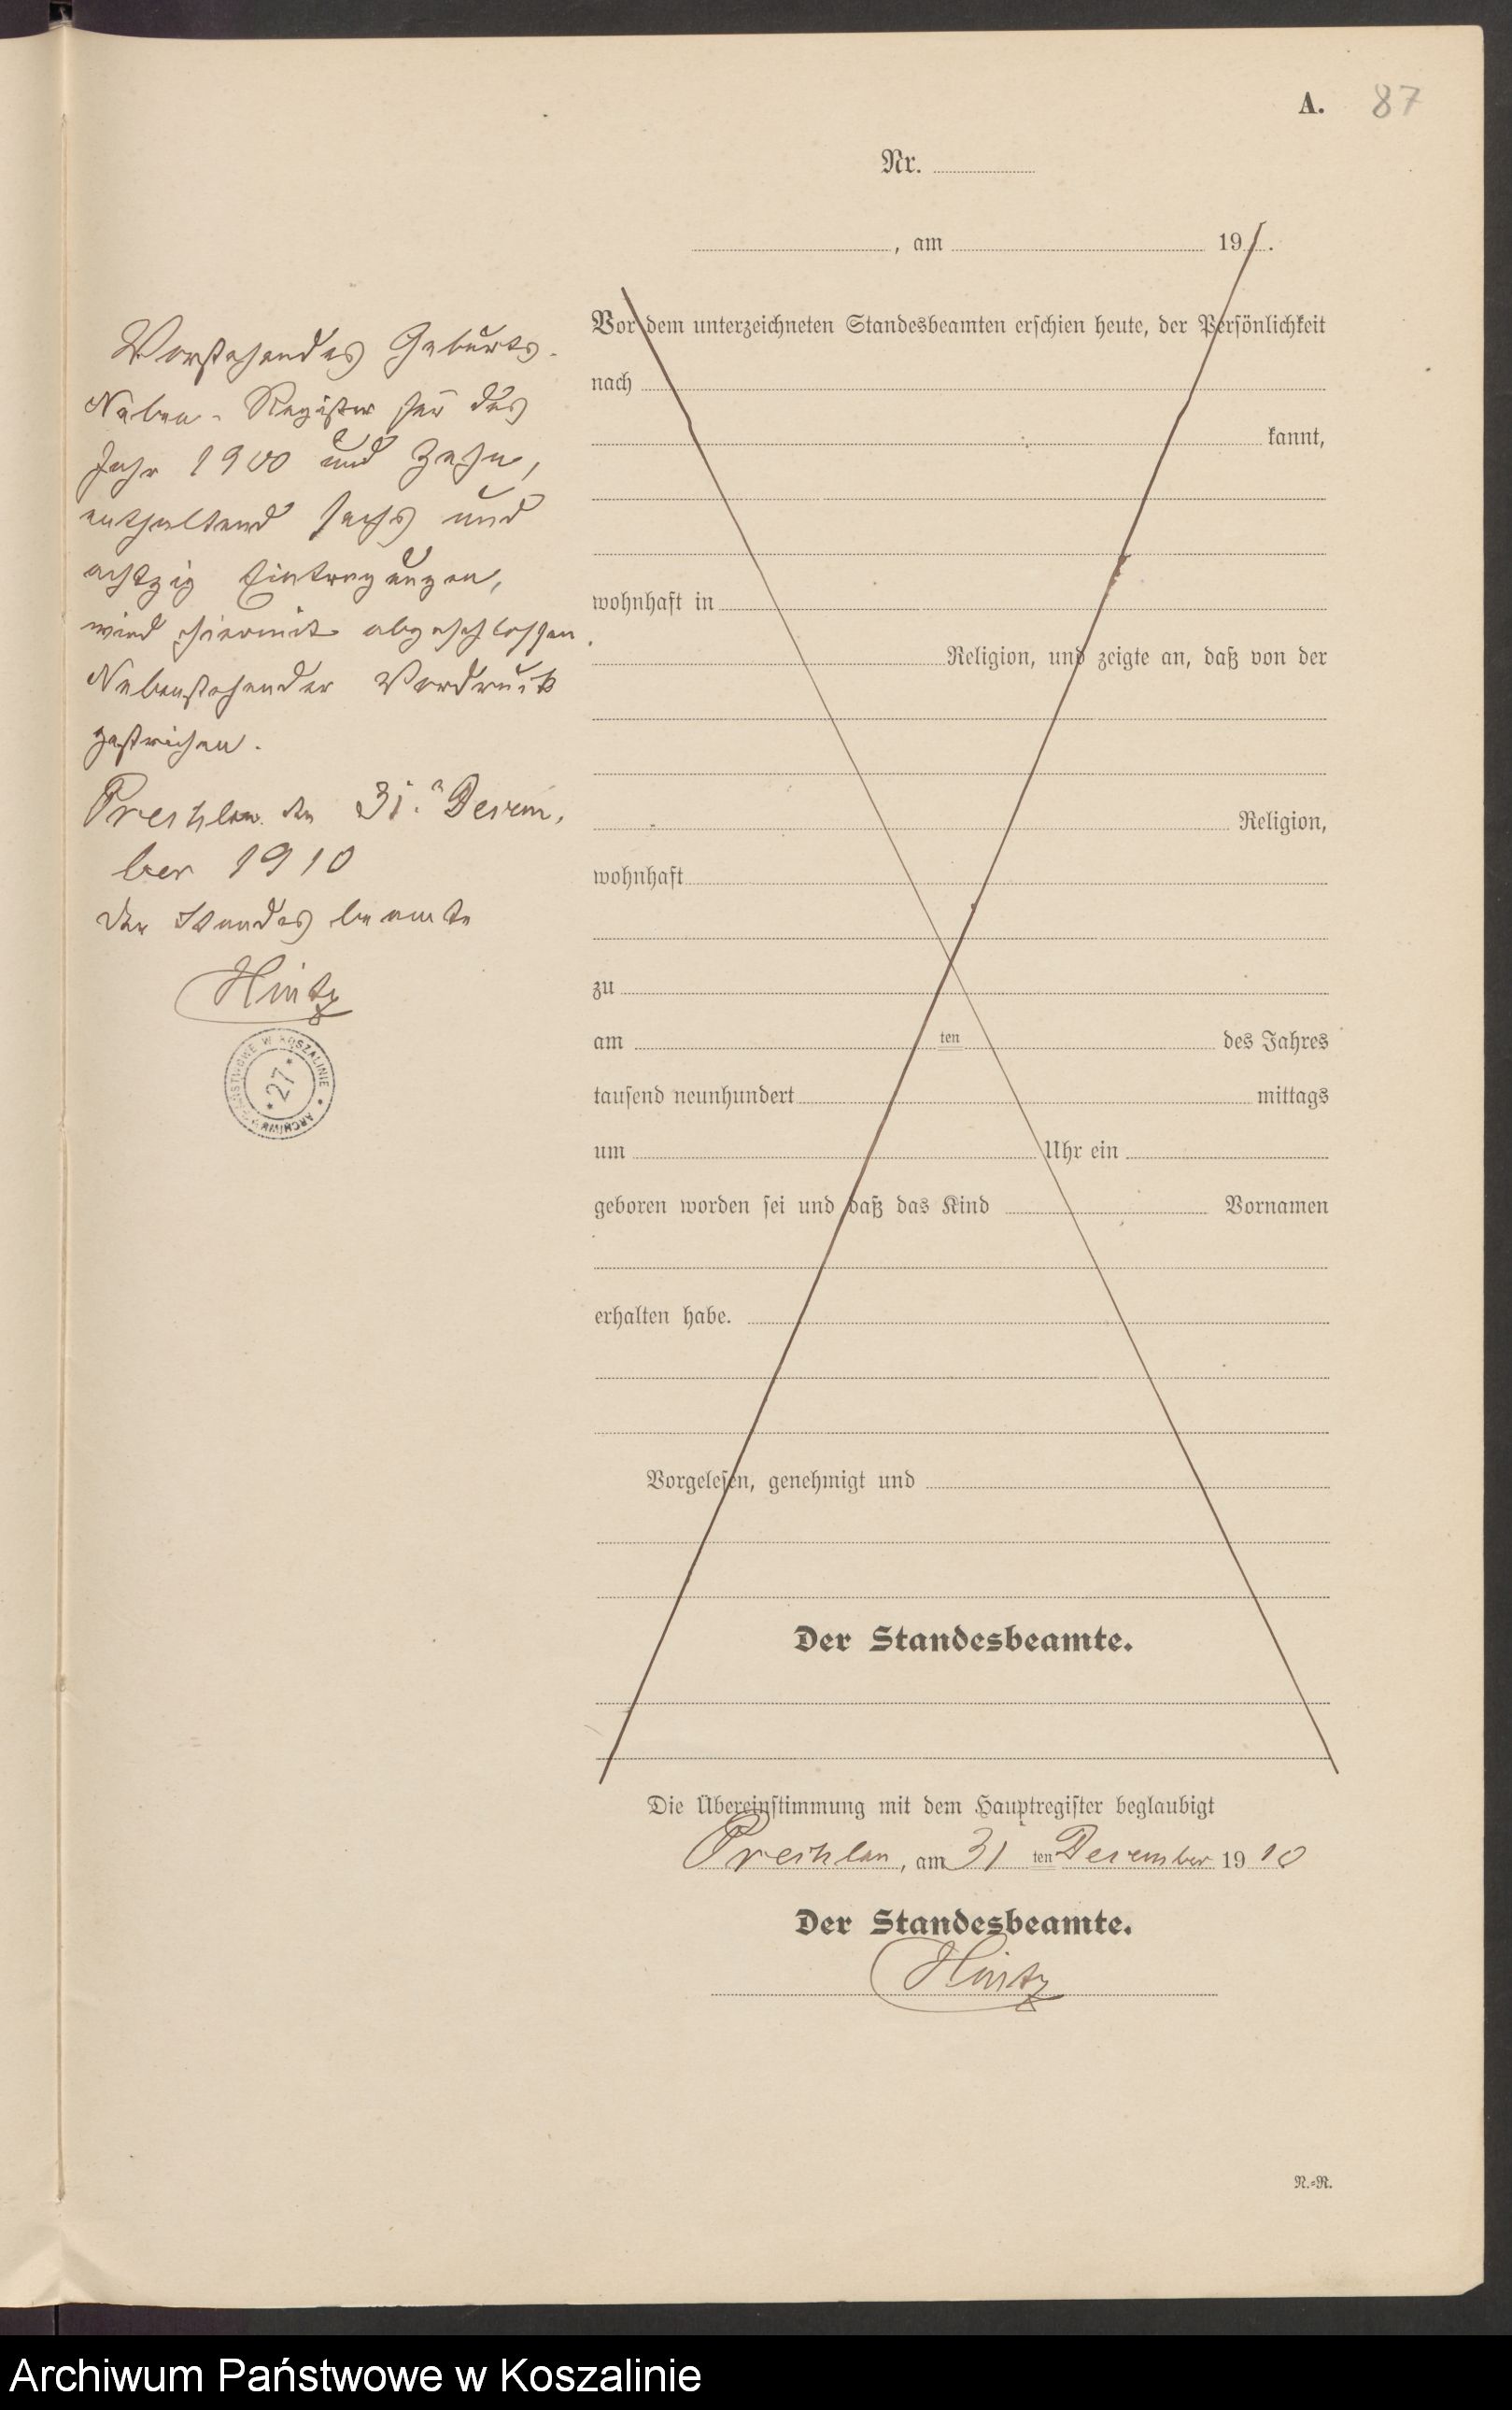 A. 87
Nr.
, am 19 .
Vorstehendes Geburts-
Neben-Register für das
Jahr 1900 und zehn,
enthaltend sechs und
achtzig Eintragungen,
wird hiermit abgeschlossen.
Nebenstehender Vordruck
gestrichen.
den 31. Dezem-
ber 1910
Der Standesbeamte
Hintz
PAŃSTWOWE W KOSZALINIE * ARCHIWUM * 27
Vor dem unterzeichneten Standesbeamten erschien heute, der Persönlichkeit
nach
kannt,
wohnhaft in
Religion, und zeigte an, daß von der
Religion,
wohnhaft
zu
am ten des Jahres
tausend neunhundert mittags
um Uhr ein
geboren worden sei und daß das Kind Vornamen
erhalten habe.
Vorgelesen, genehmigt und
Der Standesbeamte.
Die Übereinstimmung mit dem Hauptregister beglaubigt
, am 31 ten Dezember 19 10
Der Standesbeamte.
Hintz
N.-R.
Archiwum Państwowe w Koszalinie